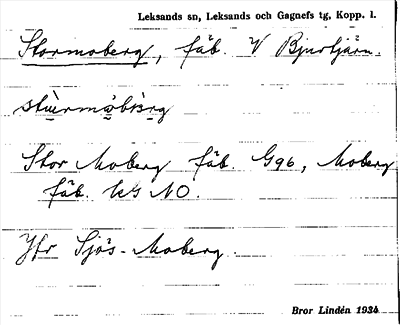 Leksands sn, Leksands och Gagnefs tg, Kopp. l.
Stormoberg, fäb. V Bjertjärn.
Stor Moberg fäb. G96, Moberg
fäb. NO.
Jfr Sjös-Moberg.
Bror Lindén 1934